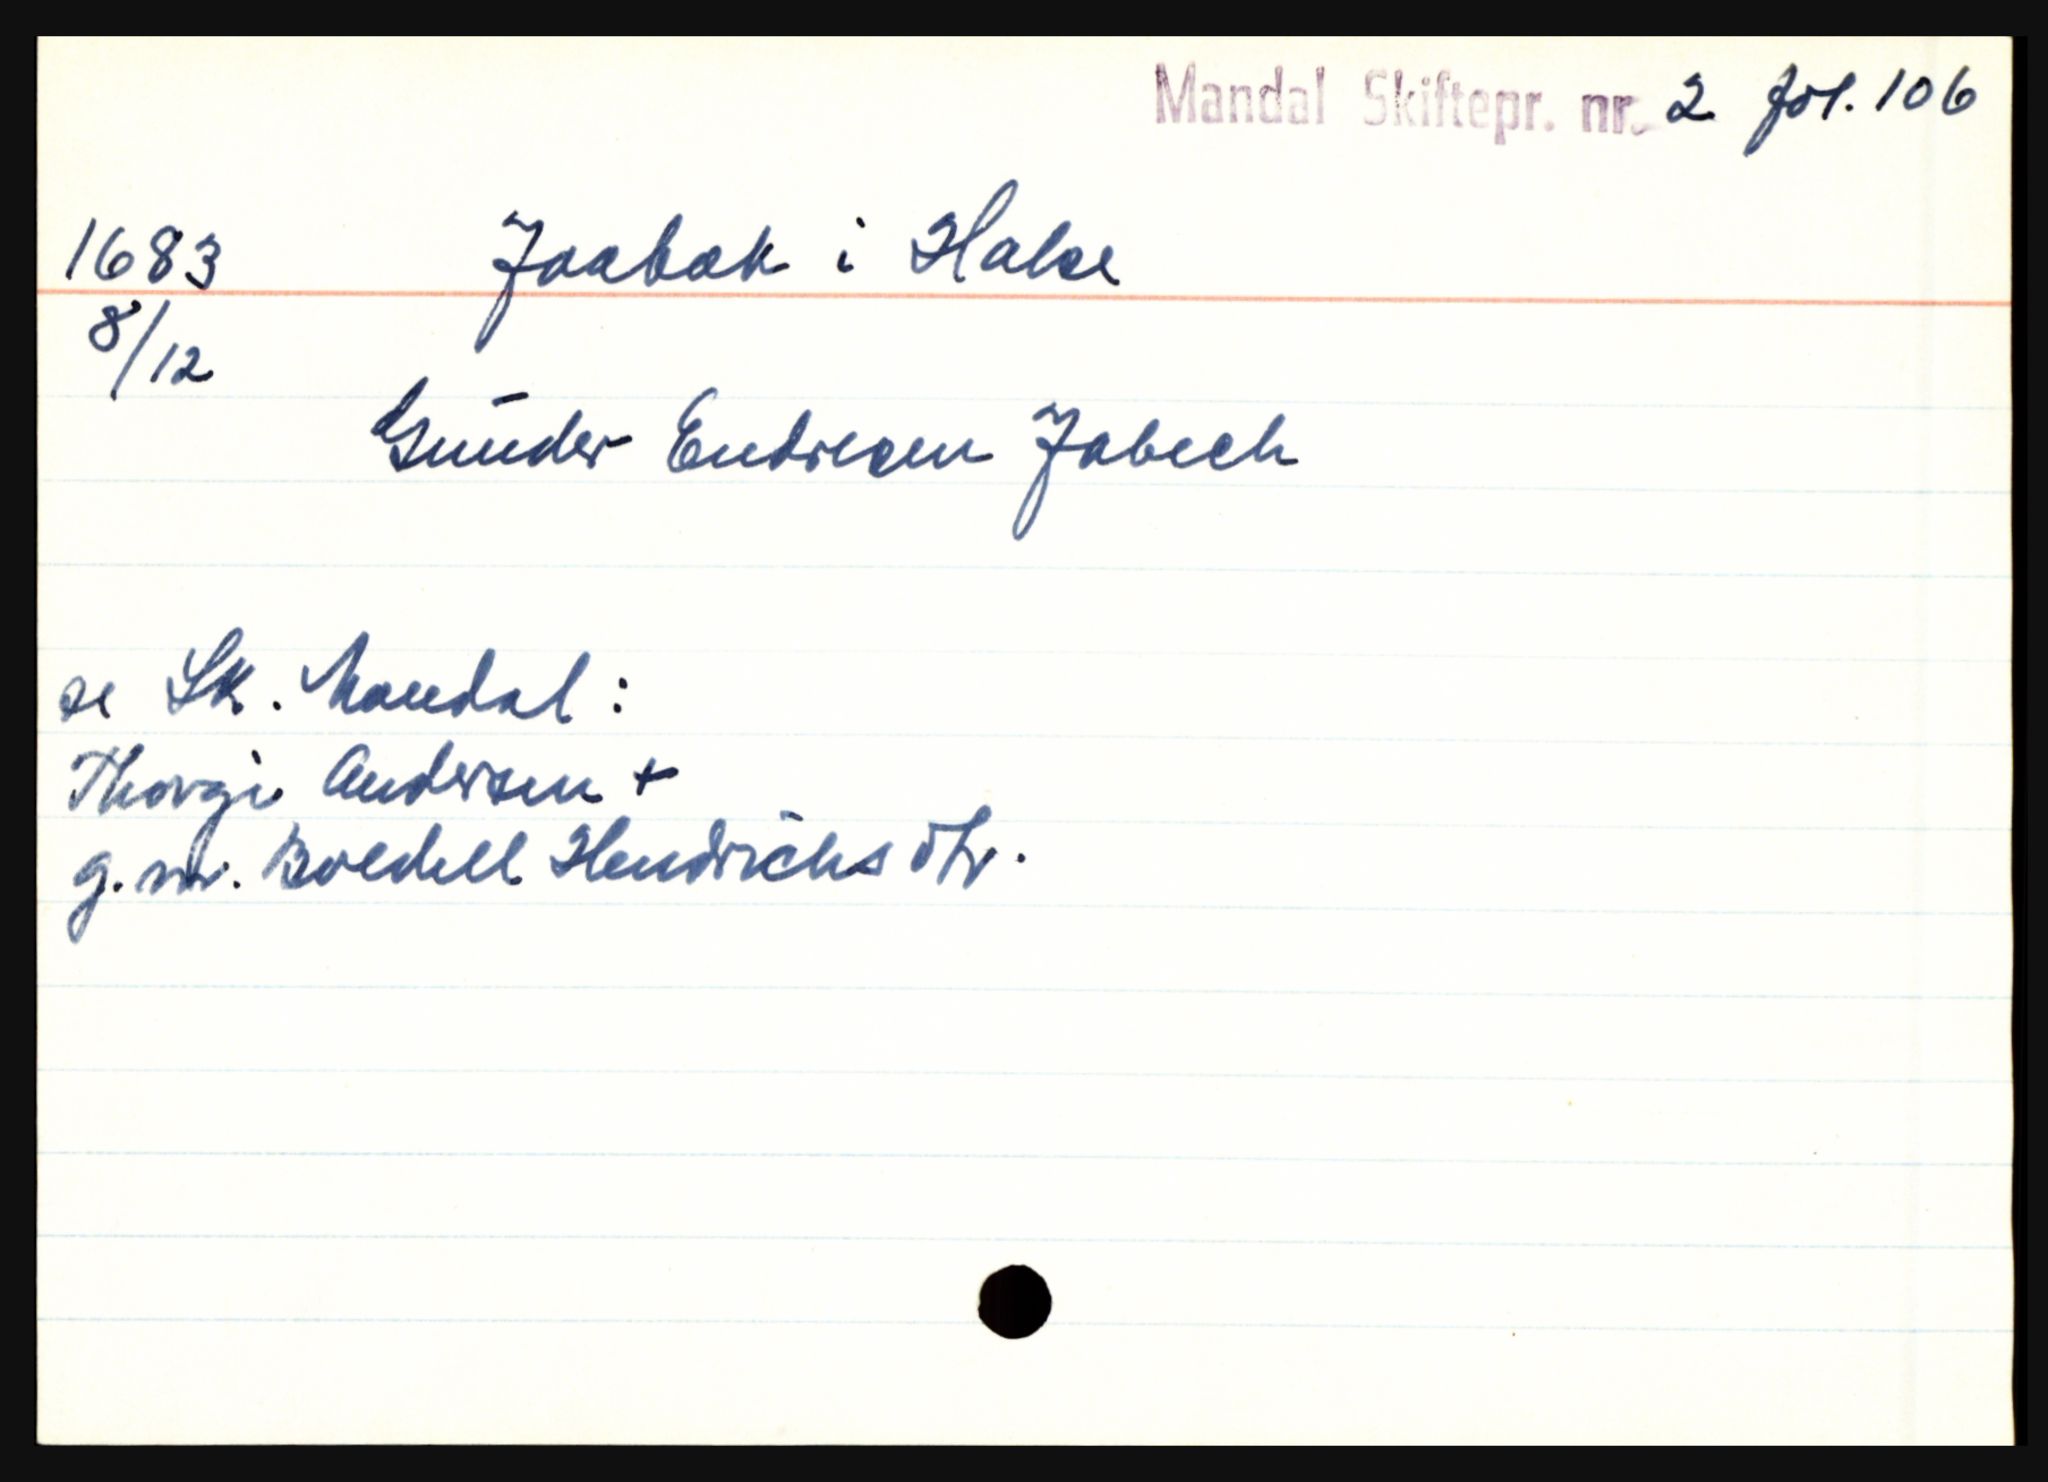 Mandal Skiftepr. nr. 2 fol. 106
1683 Jaabæk i Halse
8/12
Gunder Endresen Jabech
se Sk. Mandal:
Thorgi Andersen +
g.m. Boledell Hendrichs dtr.